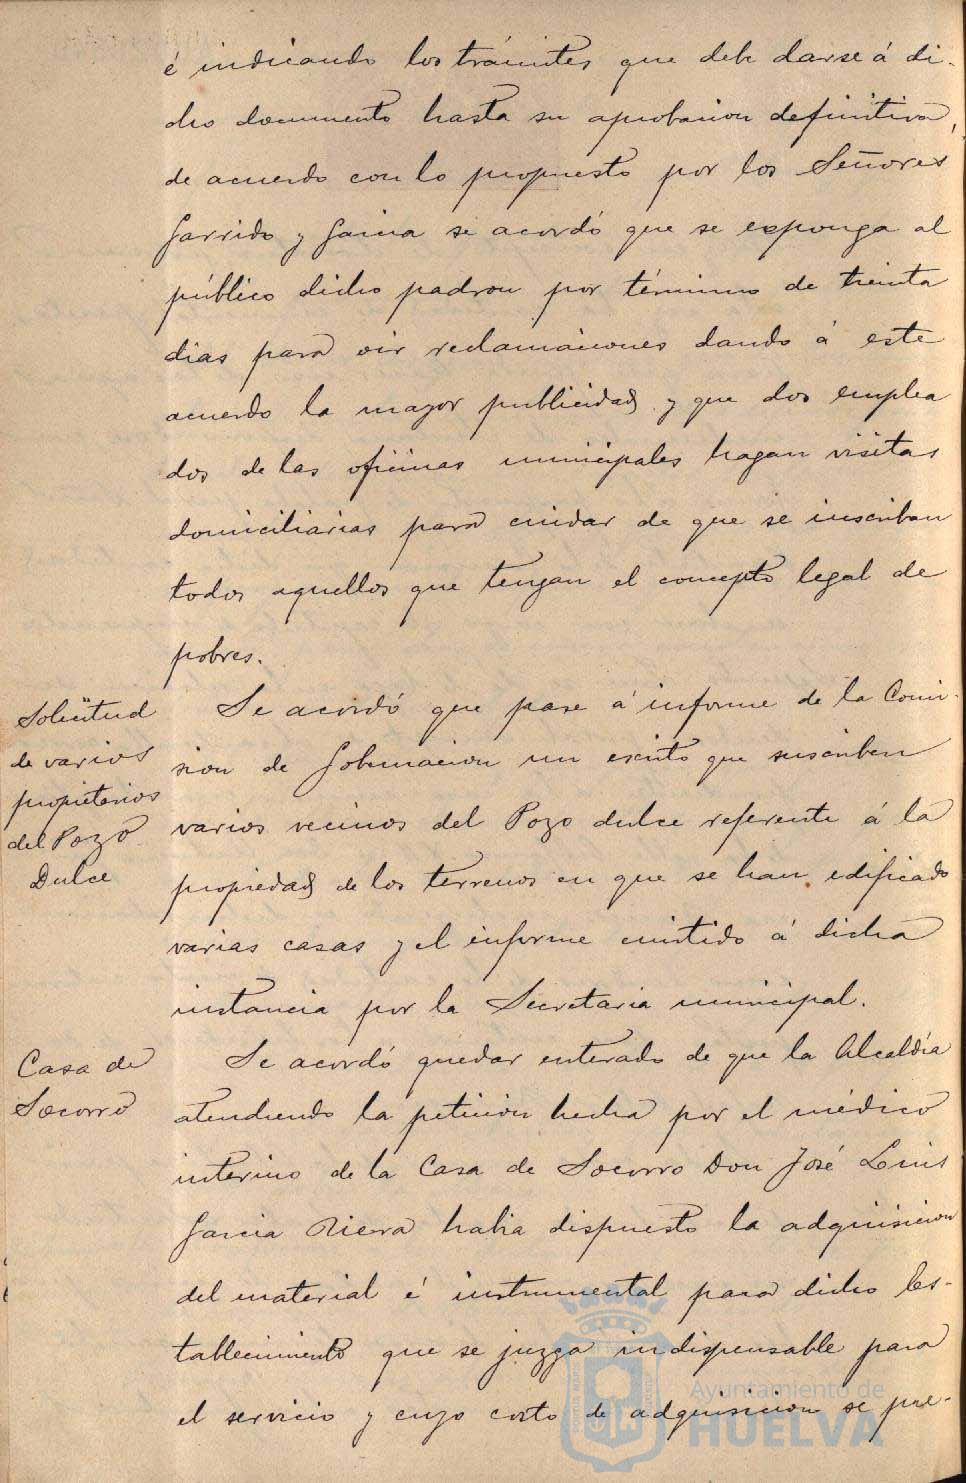 é indicando los trámites que debe darse á di-
cho documento hasta su aprobacion definitiva,
de acuerdo con lo propuesto por los Señores
Garrido y Garcia se acordó que se exponga al
público dicho padron por término de treinta
dias para oir reclamaciones dando á este
acuerdo la mayor publicidad y que dos emplea
dos de las oficinas municipales hagan visitas
domiciliarias para cuidar de que se inscriban
todos aquellos que tengan el concepto legal de
pobres.
Solicitud
de varios
propietarios
del Pozo
Dulce
Se acordó que pase á informe de la Comi-
sion de Gobernacion un escrito que suscriben
varios vecinos del Pozo dulce referente á la
propiedad de los terrenos en que se han edificado
varias casas y el informe emitido á dicha
instancia por la Secretaria municipal.
Casa de
Socorro
Se acordó quedar enterado de que la Alcaldía
atendiendo la peticion hecha por el médico
interino de la Casa de Socorro Don José Luis
Garcia Riera habia dispuesto la adquisicion
del material é instrumental para dicho Es-
tablecimiento que se juzga indispensable para
el servicio y cuyo costo de adquisicion se pre-
Ayuntamiento de
HUELVA